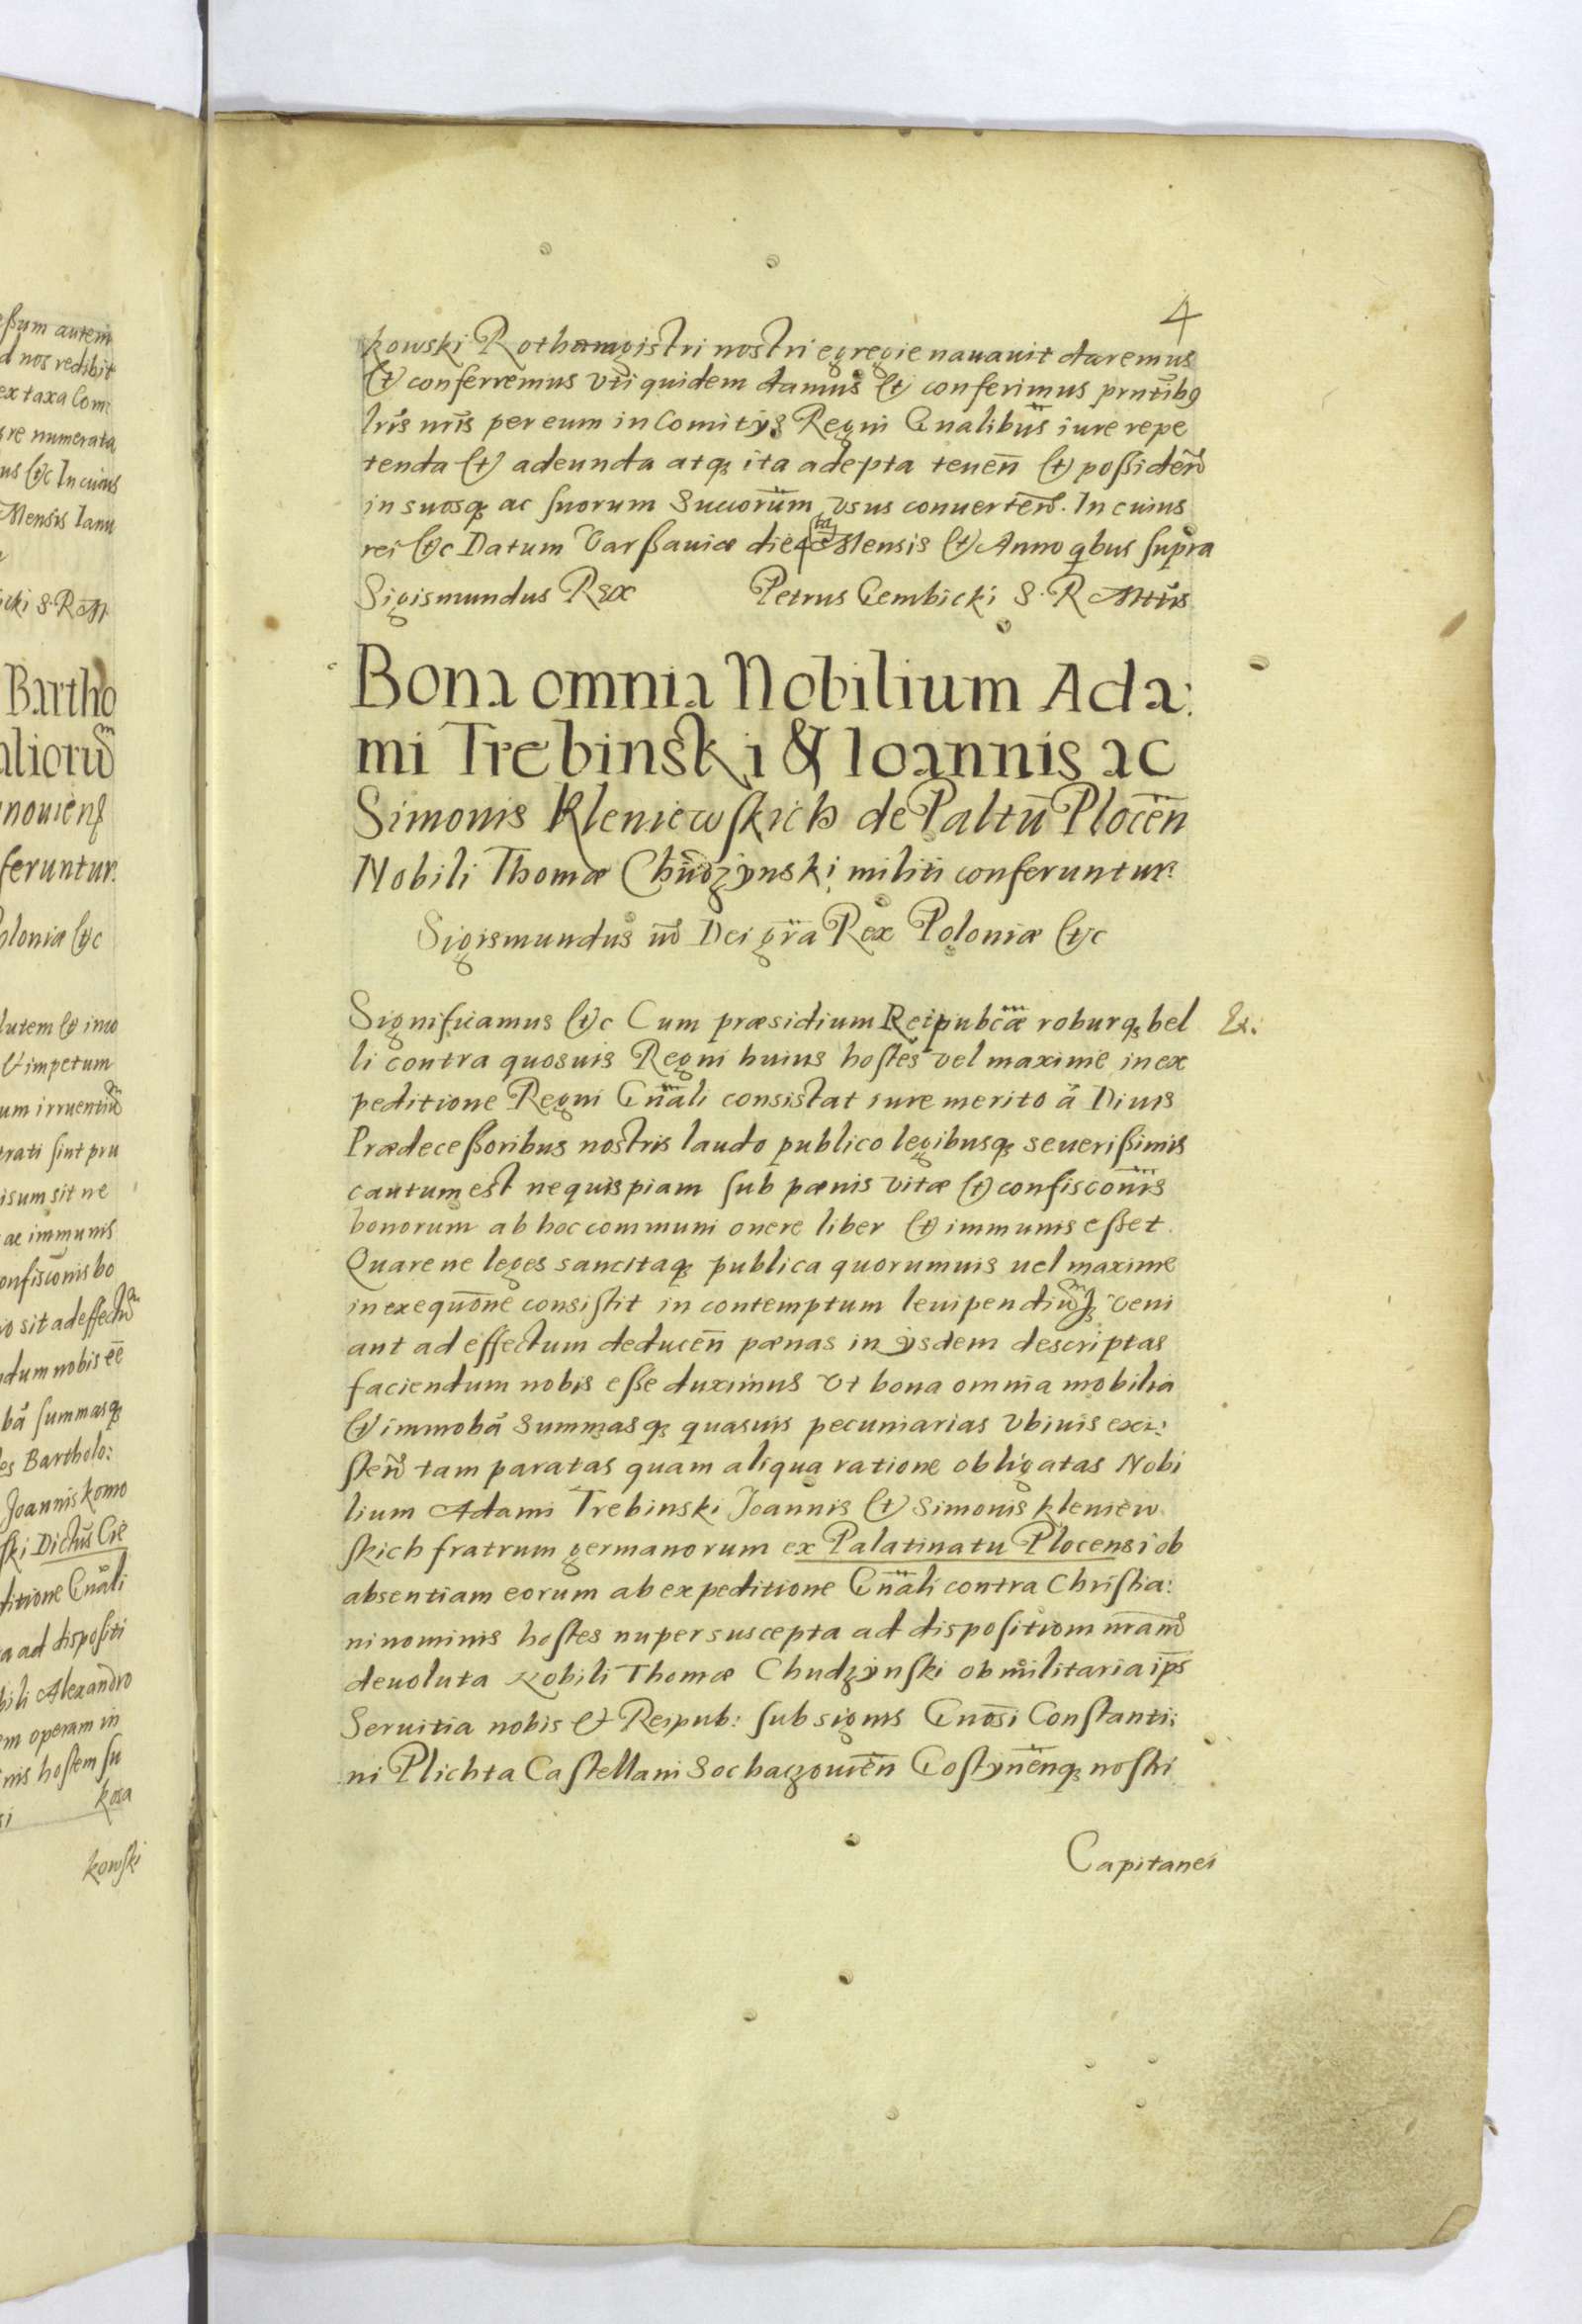 eßum autem
d nos redibit
ex taxa Com:
re numerata
us &c In cuius
Mensis Ianu
icki S. R. M.
Bartho
alioru᷉
nouien̄
feruntur.
oloniæ &c
lutem & imo
& impetum
um irruentiu᷉
rati sint pru
isum sit ne
ac immunis
onfiscōnis bo
io sit ad effectu᷉
ndum nobis eē
bã summasq́
es Bartholo:
Joannis komo
ski Dictus Cie
ditione Gnāli
a ad dispositi
bili Alexandro
em operam in
nis hostem su
si kosa
kowski
4
kowski Rothamgistri nostri egregie nauauit daremus
& conferremus vti quidem damus & conferimus pr̄ntibq
lr̄is nr̄is per eum in Comitÿs Regni Gn̄alibus iure repe
tenda & adeunda atq́ ita adepta tenen̄ & possiden̄
in suosq́ ac suorum Succorum̄ vsus conuerten̄. In cuius
rei &c Datum Varßauiæ die 4ta Mensis & Anno q̄bus supra
Sigismundus Rex Petrus Gembicki S. R. Mttis
Bona omnia Nobilium Ada:
mi Trebinski & Ioannis ac
Simonis Kleniewskich de Paltū Plocen̄
Nobili Thomæ Chudzÿnski militi conferuntur.
Sigismundus iii Dei gr̄a Rex Poloniæ &c
Significamus &c Cum præsidium Reipubcæ roburq́ bel &.:
li contra quosuis Regni huius hostes vel maxime in ex
peditione Regni Gn̄ali consistat iure merito á Diuis
Prædeceßoribus nostris laudo publico legibusq́ seuerißimis
cautum est nequispiam sub pænis vitæ & confiscōnis
bonorum ab hoc communi onere liber & immunis eßet.
Quare ne leges sancitaq́ publica quorumuis uel maxime
in exequōne consistit in contemptum leuipendiumq́ veni
ant ad effectum deducen̄ pænas in ÿsdem descriptas
faciendum nobis eße duximus Vt bona omnia mobilia
& immobã Summasq́ quasuis pecuniarias Vbiuis exi:
sten̄ tam paratas quam aliqua ratione obligatas Nobi
lium Adami Trebinski Joannis & Simonis Kleniew
skich fratrum germanorum ex Palatinatu Plocensi ob
absentiam eorum ab expeditione Gn̄ali contra Christia:
ni nominis hostes nuper suscepta ad dispositiom nr̄am
deuoluta Nobili Thomæ Chudzÿnski ob militaria ip̄s
Seruitia nobis & Reipub: sub signis Gnōsi Constanti:
ni Plichta Castellani Sochaczouien̄ Gostÿnen̄q́ nostri
Capitanei